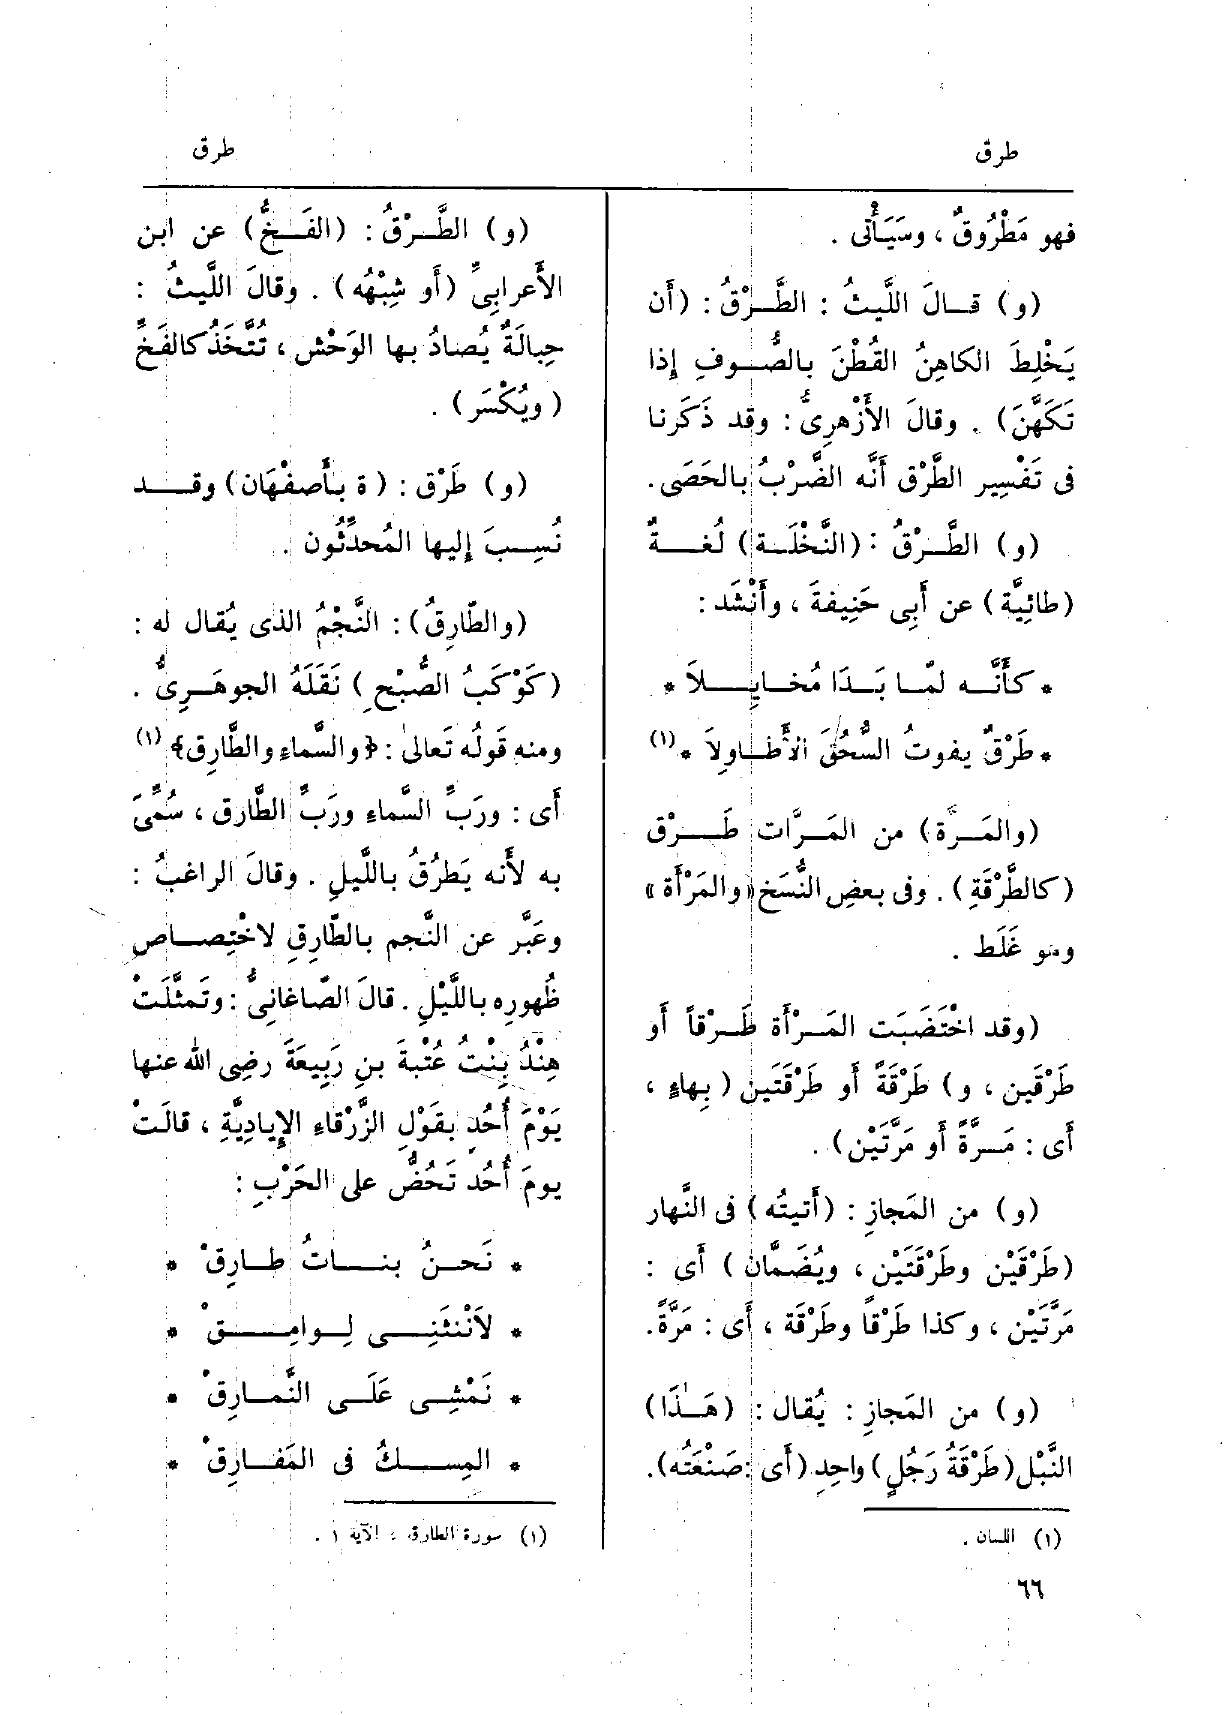 طرق
طرق
فهو مَطْرُوقٌ ، وسَيَأْتى .
(و) قـالَ اللَّيثُ : الطَّـرْقُ : (أَن
يَخْلِطَ الكاهِنُ القُطْنَ بالصُّوفِ إِذا
تَكَهَّنَ) . وقالَ الأَزْهرِىُّ : وقد ذَكَرنا
فى تَفْسِير الطَّرْق أَنَّه الضَّرْبُ بالحَصَى .
(و) الطَّـرْقُ : (النَّخْلَـة) لُغـــةٌ
(طائِيَّة) عن أَبى حَنِيفةَ ، وأَنْشَد :
* كأَنَّـه لمّـا بَـدَا مُخـايِـلاَ *
* طَرْقٌ يفوتُ السُّحُقَ الأَطـاوِلاَ * (١)
(والمَـرَّة) من المَـرَّات طَـــرْق
(كالطَّرْقَةِ) . وفى بعضِ النُّسَخ «والمَرْأَة»
وهو غَلَط .
(وقد اخْتَضَبَت المَـرْأَة طَـرْقاً أَو
طَرْقَين ، و) طَرْقَةً أَو طَرْقَتَين (بِهاءٍ ،
أَى : مَـرَّةً أَو مَرَّتَيْن) .
(و) من المَجازِ : (أَتيتُه) فى النَّهار
(طَرْقَيْن وطَرْقَتَيْن ، ويُضَمَّان) أَى :
مَرَّتَيْن ، وكذا طَرْقاً وطَرْقة ، أَى : مَرَّةً .
(و) من المَجازِ : يُقال : (هَـٰذَا)
النَّبْل (طَرْقَةُ رَجُلٍ) واحِدٍ (أَى : صَنْعَتُه) .
(١) اللسان .
٦٦
(و) الطَّـرْقُ : (الفَـخُّ) عن ابن
الأَعرابىِّ (أَو شِبْهُه) . وقالَ اللَّيثُ :
حِبالَةٌ يُصادُ بها الوَحْش ، تُتَّخَذُ كالفَخِّ
(ويُكْسَر) .
(و) طَرْق : (ة بأَصفْهَان) وقــد
نُسِـبَ إِليها المُحدِّثُون .
(والطّارِقُ) : النَّجْمُ الذى يُقال له :
(كَوْكَبُ الصُّبْحِ) نَقَلَهُ الجوهَـرِىُّ .
ومنه قَولُه تَعالىٰ : ﴿والسَّماءِ والطَّارِق﴾ (١)
أَى : ورَبِّ السَّماءِ ورَبِّ الطَّارق ، سُمِّىَ
به لأَنه يَطرُقُ باللَّيلِ . وقالَ الراغبُ :
وعَبَّر عن النَّجم بالطّارِقِ لاخْتِصـاص
ظُهورِه باللَّيْلِ . قالَ الصّاغانِىُّ : وتَمثَّلَتْ
هِنْدُ بِنْتُ عُتْبةَ بنِ رَبِيعَةَ رضِى الله عنها
يَوْمَ أُحُدٍ بقَوْلِ الزَّرْقاءِ الإِيادِيَّةِ ، قالَتْ
يومَ أُحُد تَحُضُّ على الحَرْبِ :
* نَحـنُ بنــاتُ طـارِقْ *
* لاَنَنْثَنِــى لِـوامِــقْ *
* نَمْشِـى عَلَـى النَّمـارِقْ *
* المِســكُ فى المَفـارِقْ *
(١) سورة الطارق ، الآية ١ .